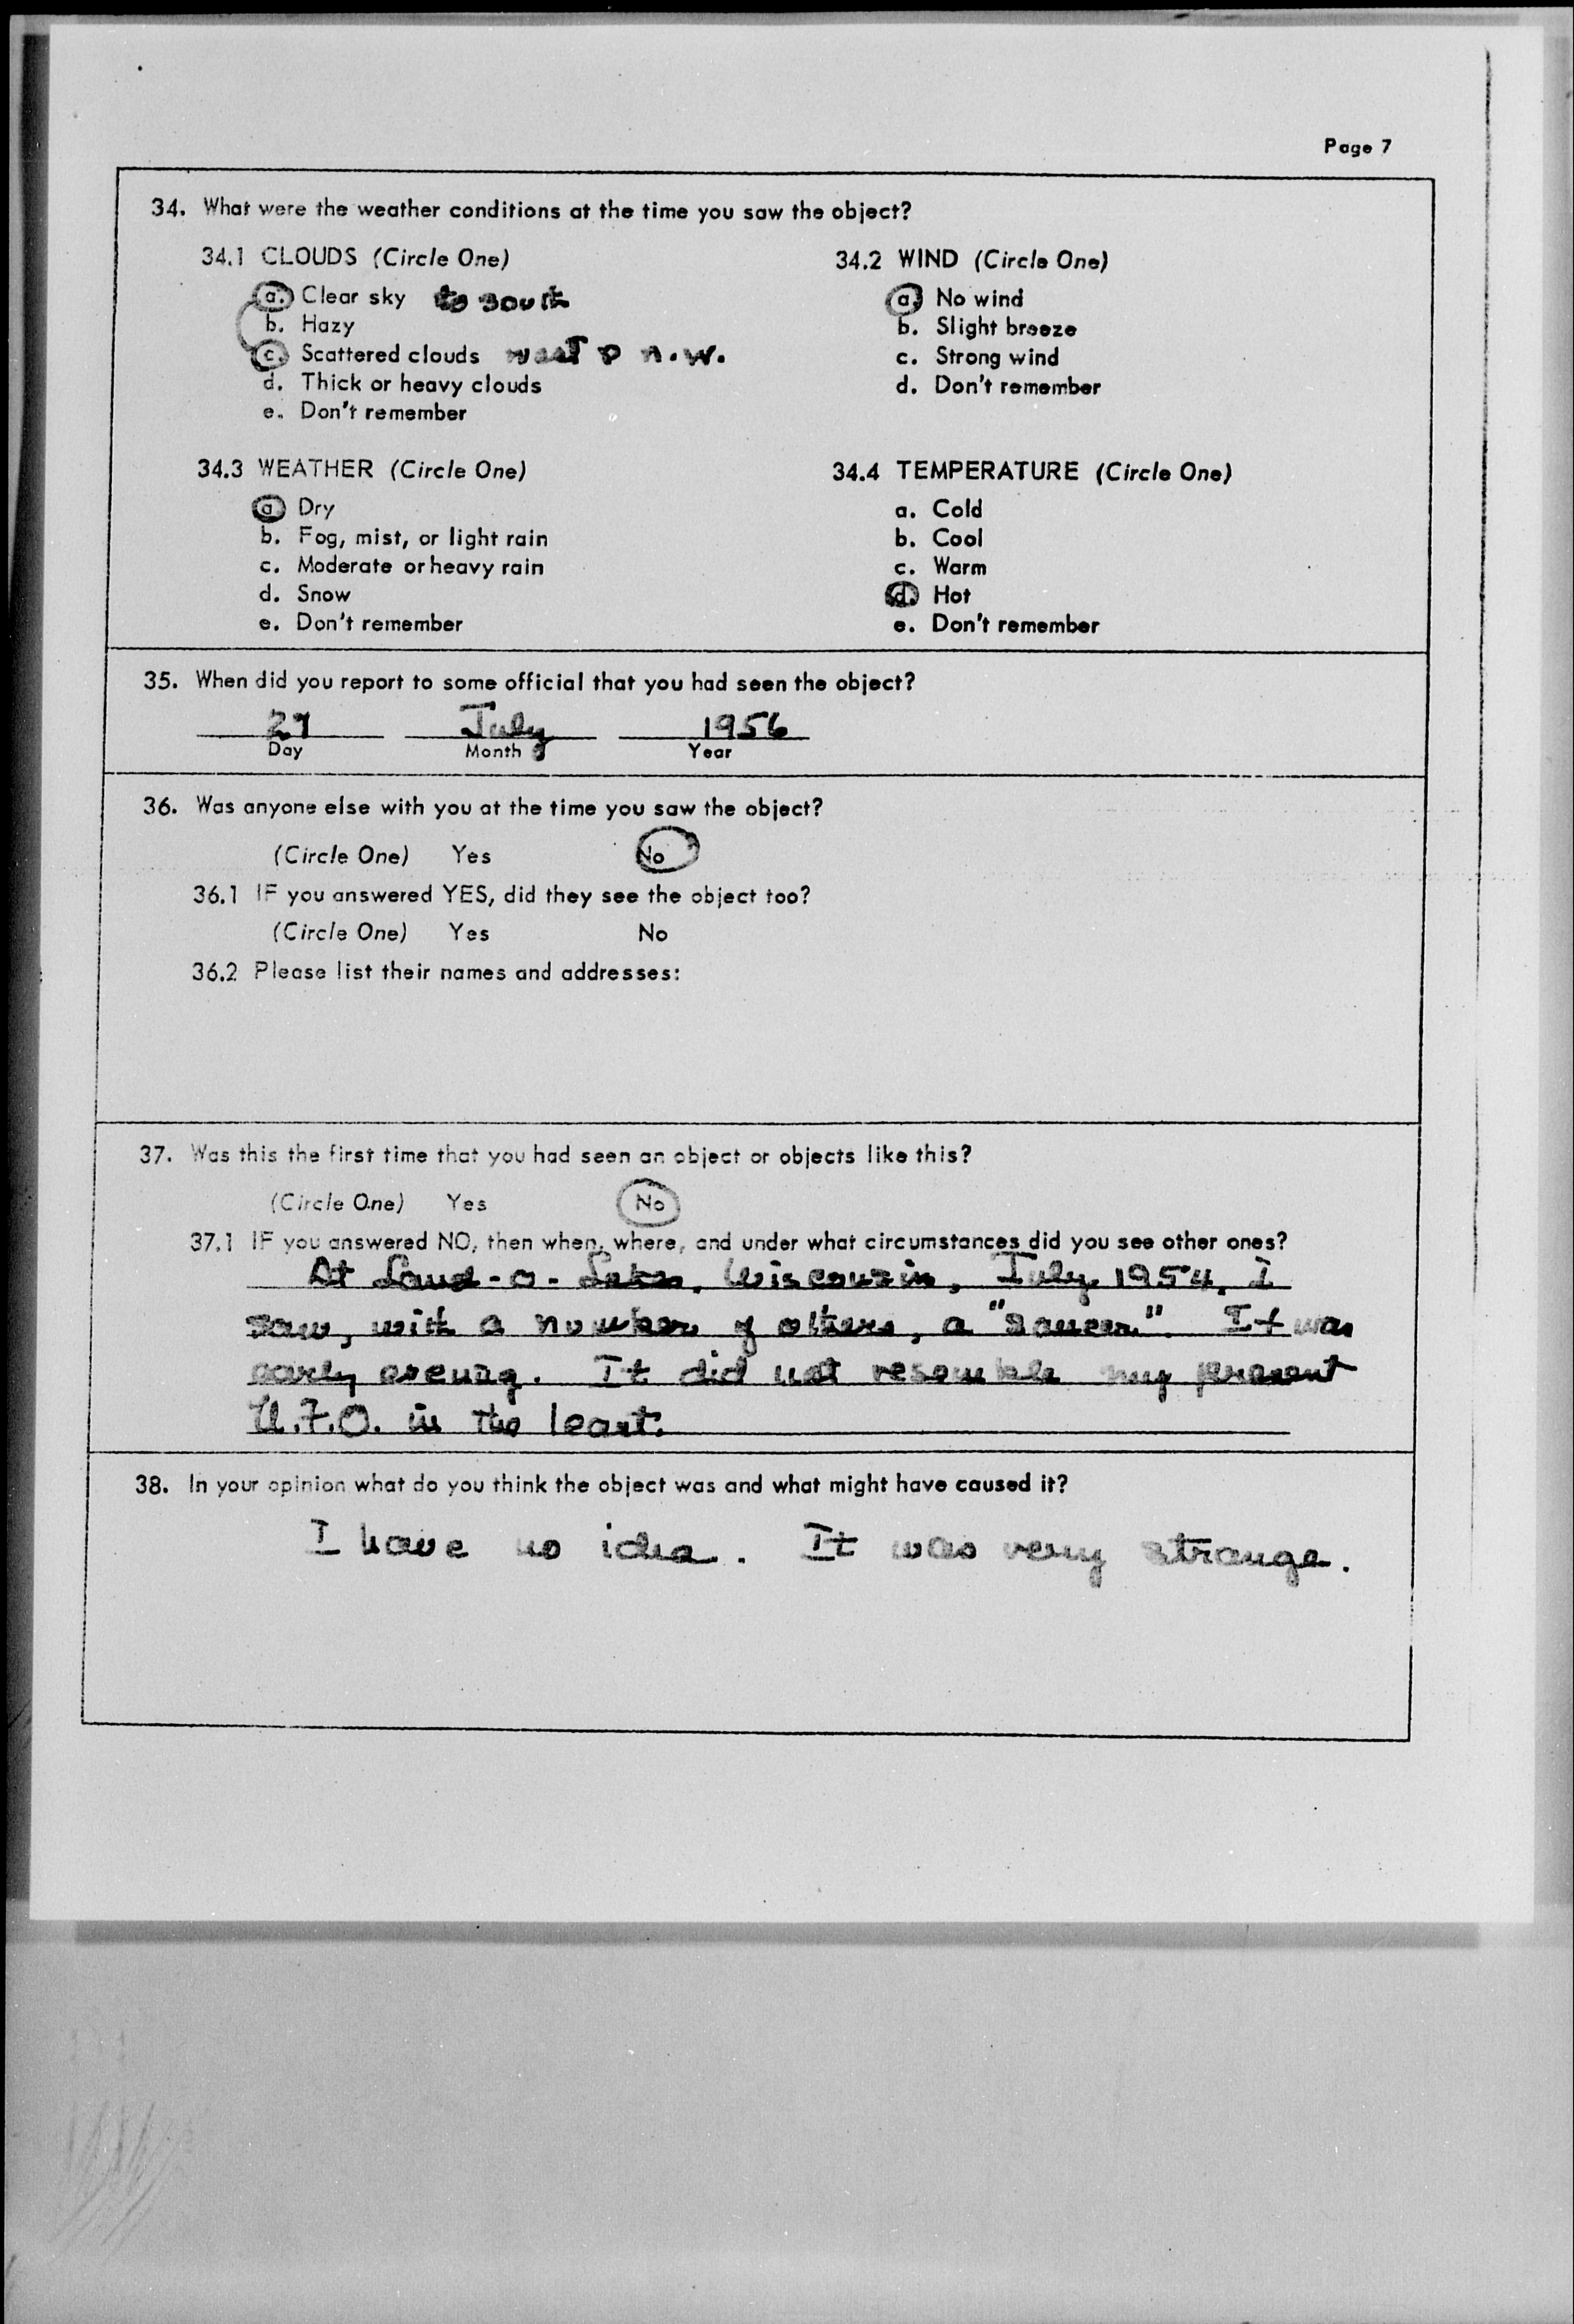 Page 7
34. What were the weather conditions at the time you saw the object?
34.1 CLOUDS (Circle One)
a. Clear sky to south
b. Hazy
c. Scattered clouds west & n.w.
d. Thick or heavy clouds
e. Don't remember
34.2 WIND (Circle One)
a. No wind
b. Slight breeze
c. Strong wind
d. Don't remember
34.3 WEATHER (Circle One)
a. Dry
b. Fog, mist, or light rain
c. Moderate or heavy rain
d. Snow
e. Don't remember
34.4 TEMPERATURE (Circle One)
a. Cold
b. Cool
c. Warm
d. Hot
e. Don't remember
35. When did you report to some official that you had seen the object?
July 1956
Day Month Year
36. Was anyone else with you at the time you saw the object?
(Circle One) Yes No
36.1 IF you answered YES, did they see the object too?
(Circle One) Yes No
36.2 Please list their names and addresses:
37. Was this the first time that you had seen an object or objects like this?
(Circle One) Yes No
37.1 IF you answered NO, then when, where, and under what circumstances did you see other ones?
At Land-o-Lakes, Wisconsin, July 1954, I
saw, with a number of others, a "saucer". It was
early evening. It did not resemble my present
U.F.O. in the least.
38. In your opinion what do you think the object was and what might have caused it?
I have no idea. It was very strange.